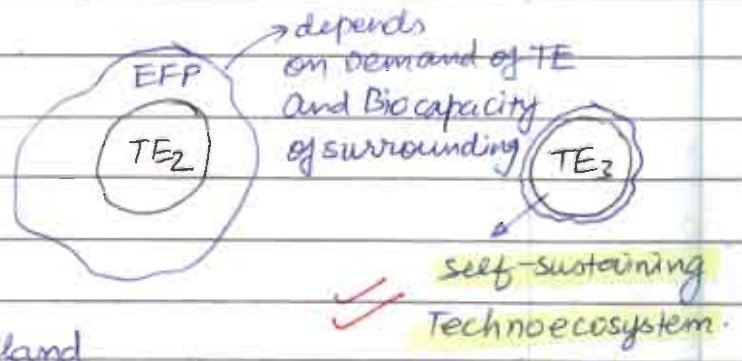 depends
EFP
on demand of TE
and Biocapacity
of surrounding
TE2
TE3
self-sustaining
Technoecosystem.
land